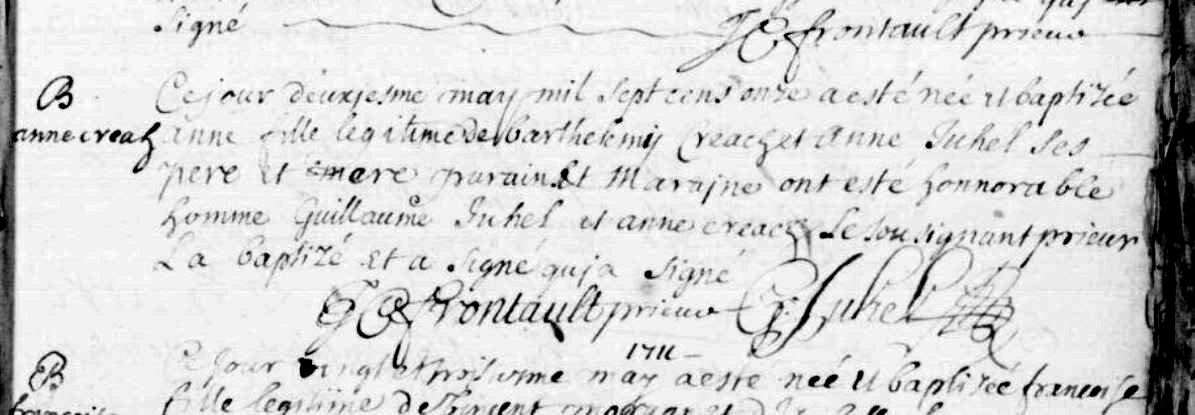 signé
frontault prieur
B
anne creach
Ce jour deuxiesme may mil sept cens onze a esté née et baptizée
anne fille legitime de barthelemij Creach et Anne Juhel ses
pere et mere parain et Marajne ont esté honnorable
homme Guillaume Juhel et anne creach Le sousignant prieur
La baptizé Et a signé quja signé
frontault prieur G: Juhel
1711
B
Ce jour vingt et troisieme may a esté née et baptizée francoise
fille legitime de